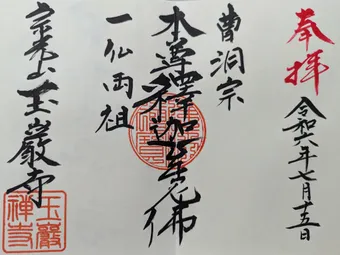 奉拝
令和六年七月十五日
曹洞宗
本尊釋迦牟尼佛
一仏両祖
玉巖寺
玉巖
禅寺